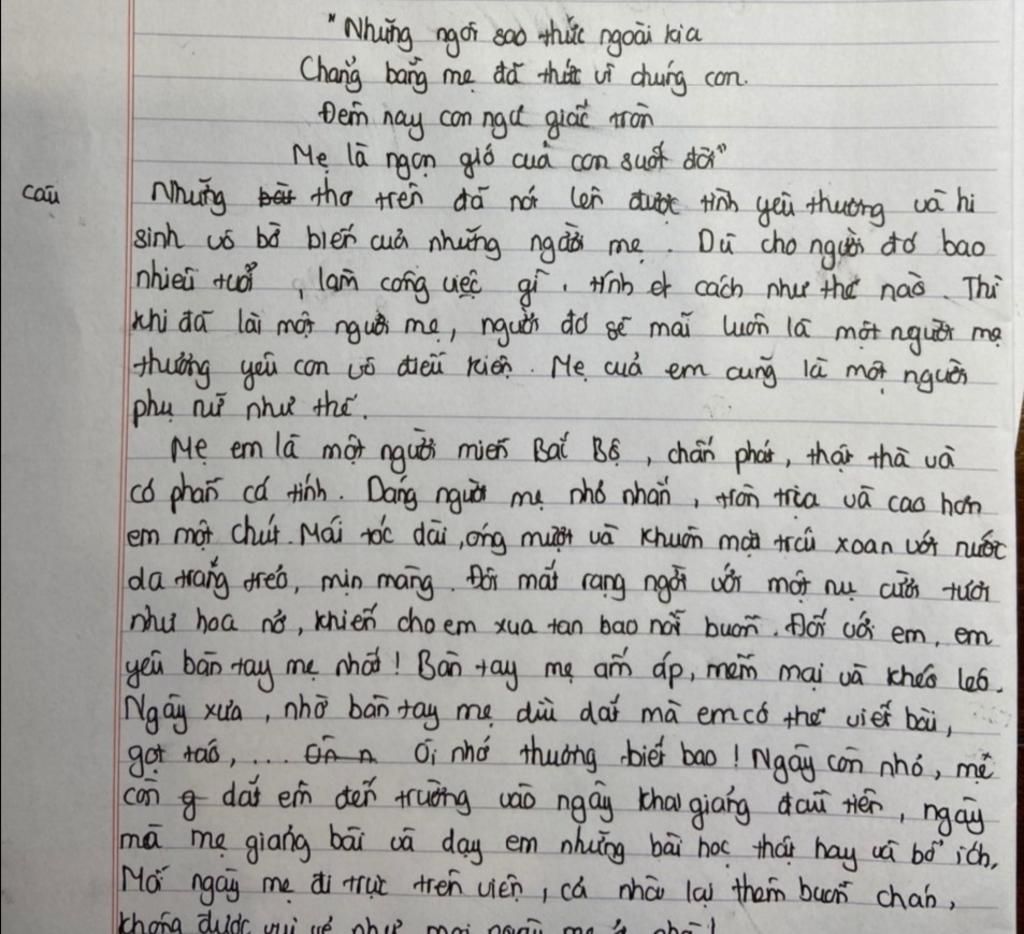 "Những ngôi sao thức ngoài kia
Chẳng bằng mẹ đã thức vì chúng con.
Đêm nay con ngủ giấc tròn
Mẹ là ngọn gió của con suốt đời"
câu
Những bài thơ trên đã nói lên được tình yêu thương và hi
sinh vô bờ biến của những người mẹ. Dù cho người đó bao
nhiêu tuổi, làm công việc gì, tính et cách như thế nào. Thì
khi đã lài một người mẹ, người đó sẽ mãi luôn là một người mẹ
thương yêu con vô điều kiện. Mẹ của em cũng là một người
phụ nữ như thế.
Mẹ em là một người miền Bắc Bộ, chân phát, thật thà và
có phần cá tính. Dáng người mẹ nhỏ nhắn, tròn trịa và cao hơn
em một chút. Mái tóc dài, óng mượt và khuôn mặt trái xoan với nước
da trắng trẻo, mịn màng. Đôi mắt rạng ngời với một nụ cười tươi
như hoa nở, khiến cho em xua tan bao nỗi buồn. Đối với em, em
yêu bàn tay mẹ nhất! Bàn tay mẹ ấm áp, mềm mại và khéo léo.
Ngày xưa, nhờ bàn tay mẹ dìu dắt mà em có thể viết bài,
gọt táo, ... Ôi nhớ thương biết bao! Ngày còn nhỏ, mẹ
còn g dắt em đến trường vào ngày khai giảng đầu tiên, ngày
mà mẹ giảng bài và dạy em những bài học thật hay và bổ ích.
Mỗi ngày mẹ đi trực trên viện, cả nhà lại thấm buồn chán,
không được vui vẻ như mọi ngày mẹ ở nhà!